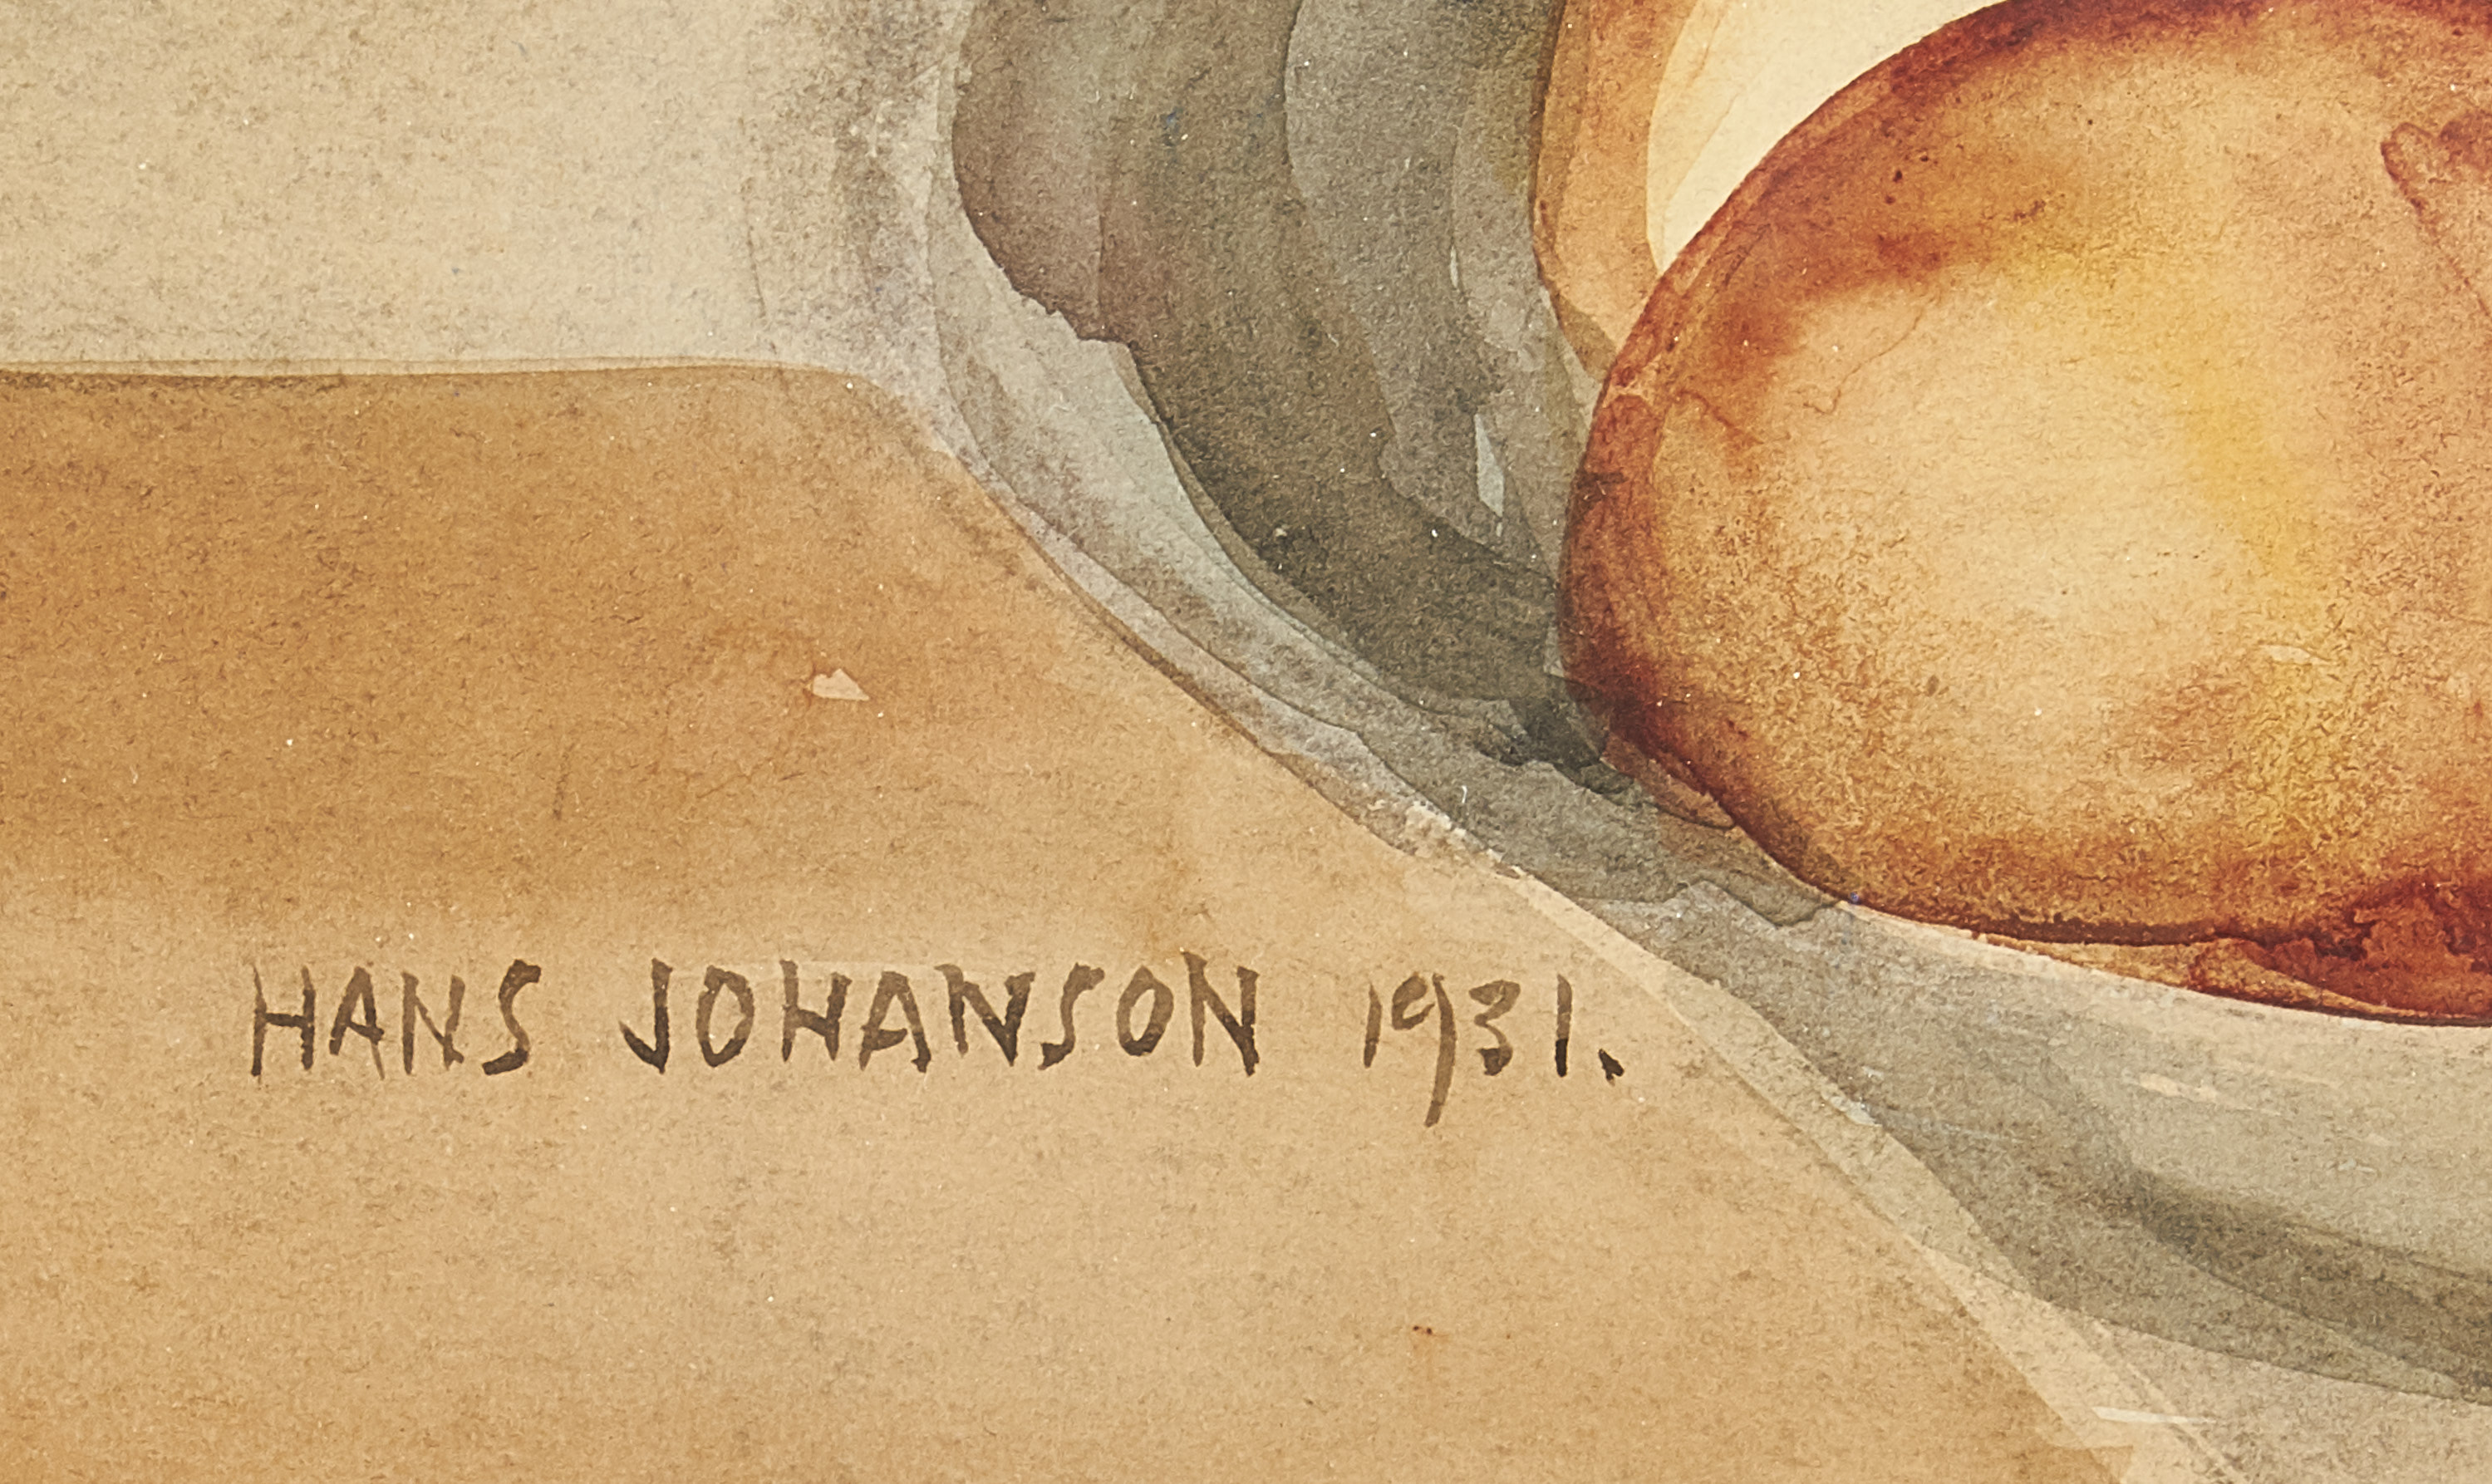 HANS JOHANSON 1931.